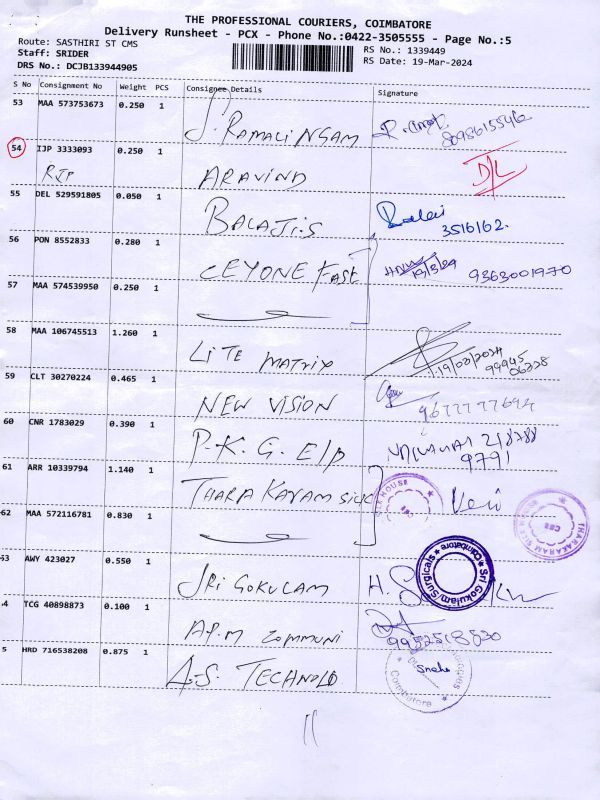 THE PROFESSIONAL COURIERS, COIMBATORE
Delivery Runsheet - PCX - Phone No.:0422-3505555 - Page No.:5
Route: SASTHIRI ST CMS
RS No.: 1339449
Staff: SRIDER
RS Date: 19-Mar-2024
DRS No.: DCJB133944905
S No Consignment No Weight PCS Consignee Details Signature
53 MAA 573753673 0.250 1
S. RAMALINGAM 8098615546
54 IJP 3333093 0.250 1
RJP ARAVIND D/L
55 DEL 529591805 0.050 1
BALAJI.S 3516162.
56 PON 8552833 0.280 1
CEYONE FAST 19/3/24 9363001970
57 MAA 574539950 0.250 1
58 MAA 106745513 1.260 1
LITE MATRIX 19/03/2024
99945
06228
59 CLT 30270224 0.465 1
NEW VISION 9677777694
60 CNR 1783029 0.390 1
P.K.G. E/P
9791
61 ARR 10339794 1.140 1
THARAKARAM SILK
THARAKARAM SILK HOUSE
CBE
62 MAA 572116781 0.830 1
53 AWY 423027 0.550 1
SRI GOKULAM
Sri Gokulam Surgicals
Coimbatore
.4 TCG 40898873 0.100 1
AP.M COMMUNI 9952518830
5 HRD 716538208 0.875 1
A.S. TECHNOLO
Sneha
Coimbatore